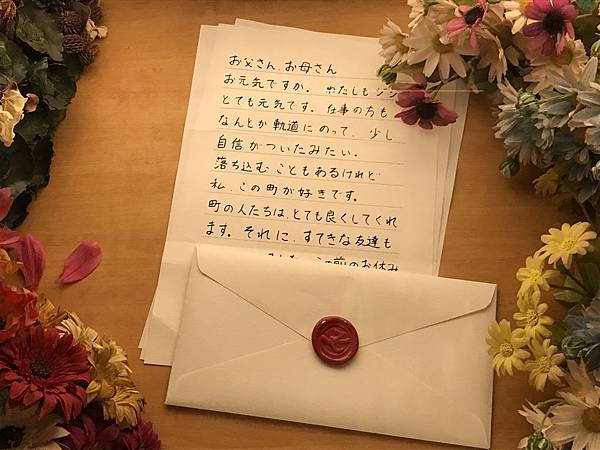 お父さん、お母さん
お元気ですか。わたしもジジ
とても元気です。仕事の方も
なんとか軌道にのって、少し
自信がついたみたい。
落ち込むこともあるけれど
私、この町が好きです。
町の人たちは、とても良くしてくれ
ます。それに、すてきな友達も
この前のお休み